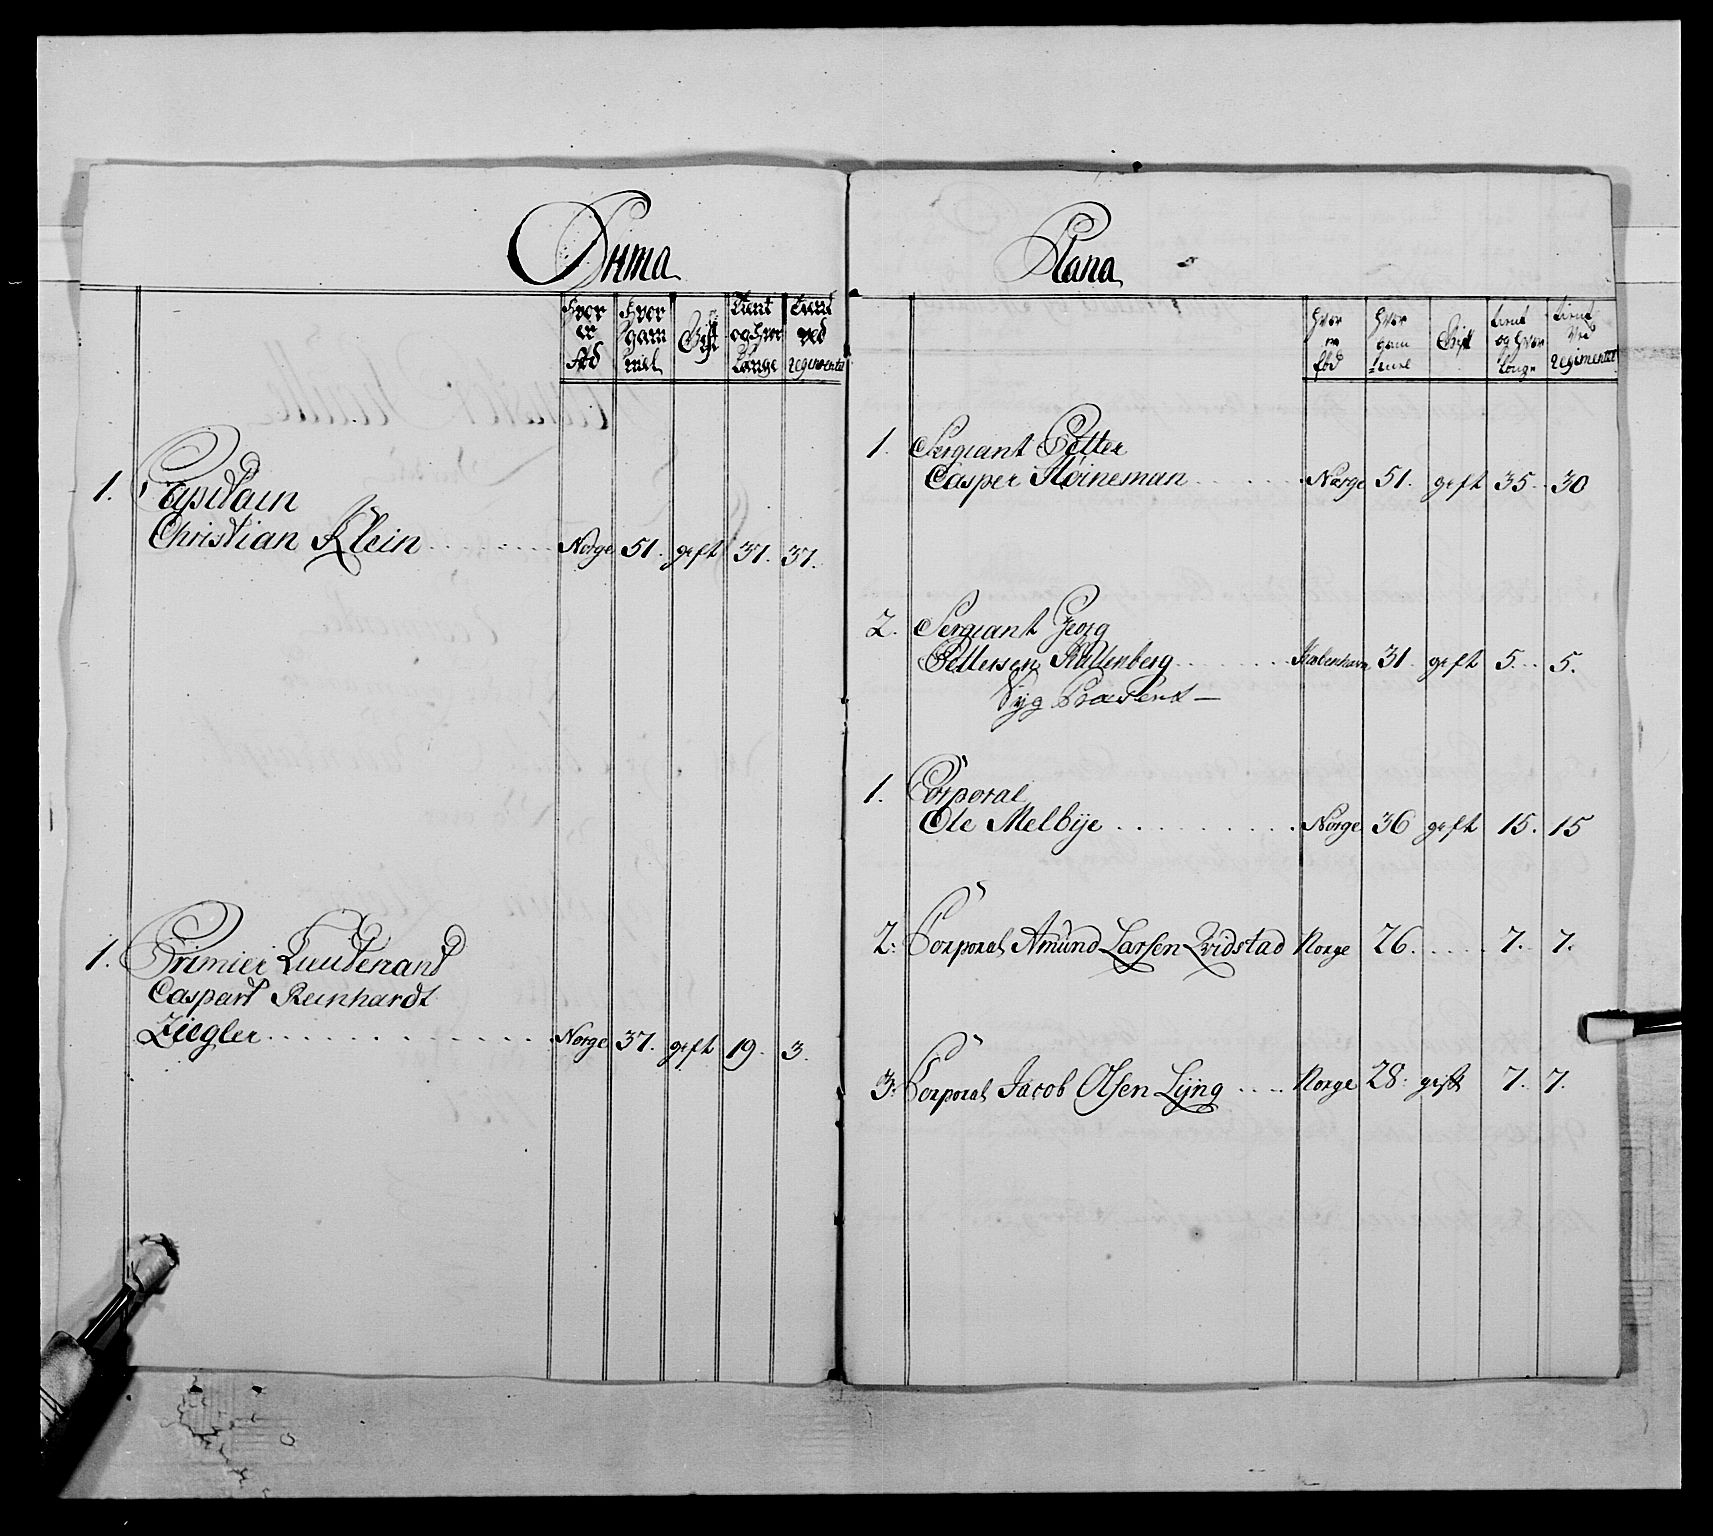 Prima
Hvor er fød | Hvor gam mel | Gift | Tient og hvor Længe | Tient ved regimentet
1. Capitain
Christian Klein . . . . . . Norge 51. geft 37. 37.
1. Primier Lieutenant
Caspart Reinhardt
Ziegler . . . . . . . . . . . . Norge 37. geft 19. 3.
Plana
Hvor er fød | Hvor gam mel | Gift | tient og hvor længe | tient Ved regimentet
1. Sergiant Petter
Casper Høineman . . . . . . Norge 51. geft 35. 30
2. Sergiant Georg
Pettersen Kullenberg . . . . . . Kiøbenhavn 31 geft 5. 5.
Syg Præsent —
1. Corporal
Ole Melbije . . . . . . . . . . Norge 36 geft 15. 15
2. Corporal Amund Larsen Qvidstad Norge 26. . . . . 7. 7.
3. Corporal Jacob Olsen Lijng . . . . Norge 28. gift 7. 7.